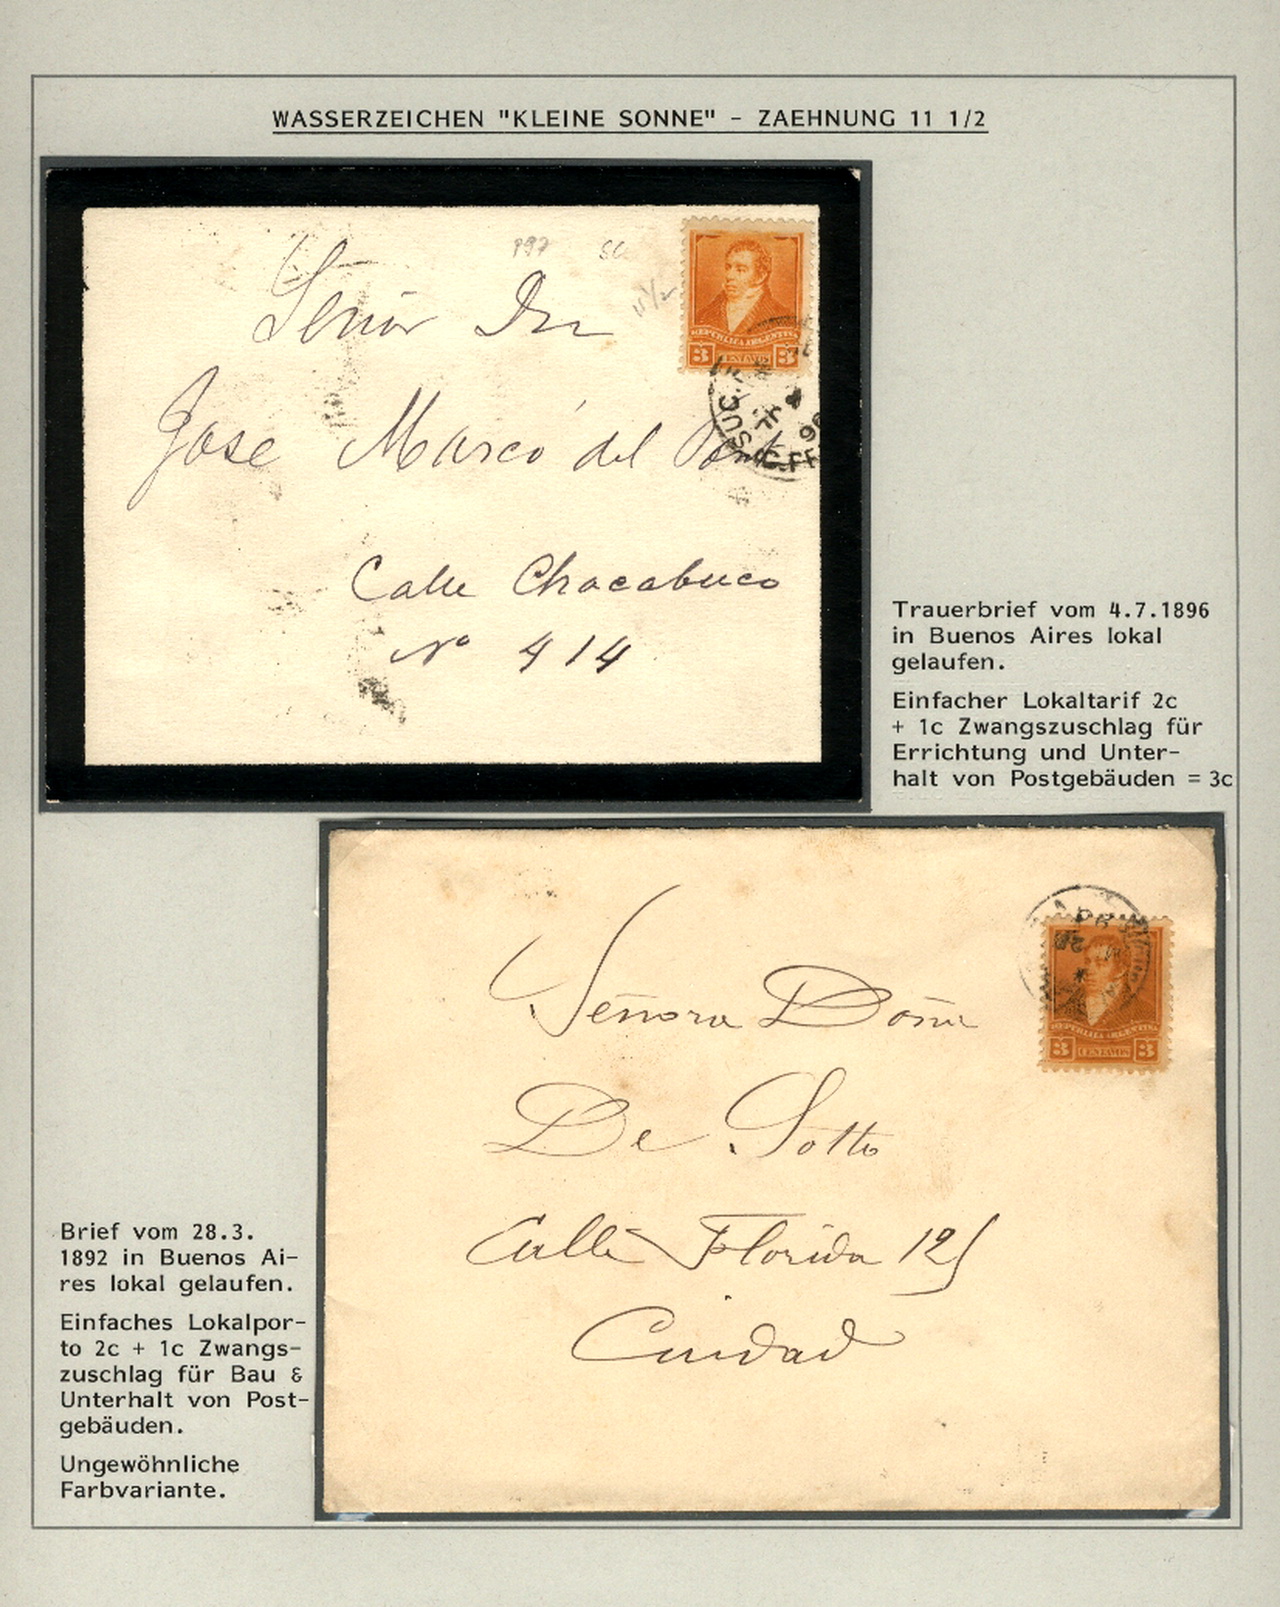 WASSERZEICHEN "KLEINE SONNE" - ZAEHNUNG 11 1/2
P97
11 1/2
Señor Dn
Jose Marcó del Pont
Calle Chacabuco
Nº 414
REPUBLICA ARGENTINA
3 CENTAVOS 3
SUC.
JL
4
96
Trauerbrief vom 4.7.1896
in Buenos Aires lokal
gelaufen.
Einfacher Lokaltarif 2c
+ 1c Zwangszuschlag für
Errichtung und Unter-
halt von Postgebäuden = 3c
Señora Doña
De Sotto
Calle Florida 125
Ciudad
REPUBLICA ARGENTINA
3 CENTAVOS 3
28
Brief vom 28.3.
1892 in Buenos Ai-
res lokal gelaufen.
Einfaches Lokalpor-
to 2c + 1c Zwangs-
zuschlag für Bau &
Unterhalt von Post-
gebäuden.
Ungewöhnliche
Farbvariante.